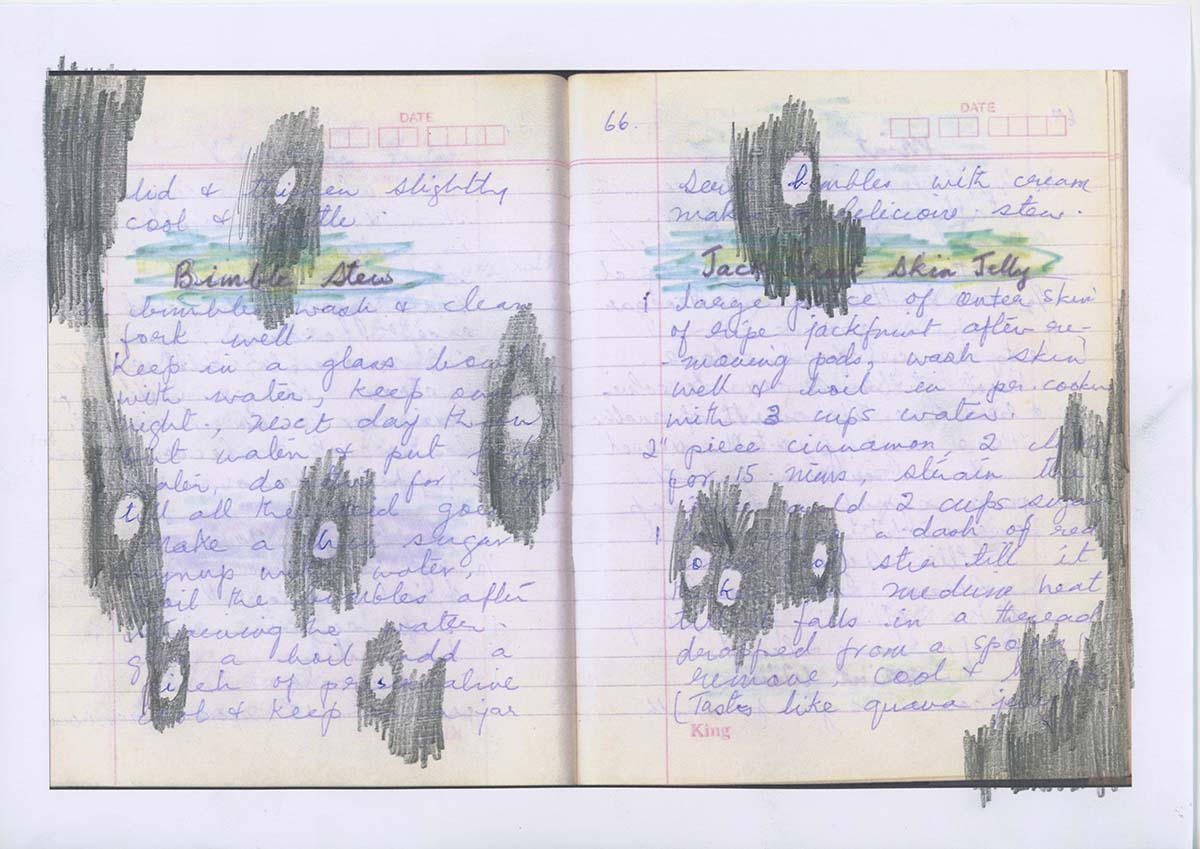 DATE
lid & thicken slightly
cool & bottle.
Brimble Stew
brimbles wash & clean
fork well.
Keep in a glass bowl
with water, keep over
night., next day throw
out water & put fresh
water, do this for
till all the goes
make a sugar
syrup water,
boil the bimbles after
straining the water.
a boil, add a
pinch of preservalive
cool & keep jar
66.
DATE
serve bimbles with cream
makes a delicious stew.
Jack Fruit Skin Jelly
1 large piece of outer skin
of ripe jackfruit after re-
-moving pods, wash skin
well & boil in pr. cooker
with 3 cups water.
2" piece cinnamon, 2
for 15 mins, strain the
add 2 cups sugar
1 a dash of red
stir till it
medium heat
falls in a thread
dropped from a spoon
remove, cool &
(Tastes like guava jelly
King